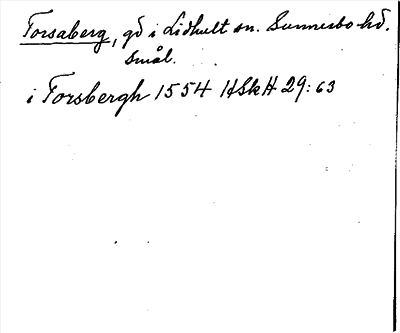 Forsaberg, gd i Lidhult sn. Sunnerbo hd.
Smål.
i Forsbergh 1554 HSkH 29:63